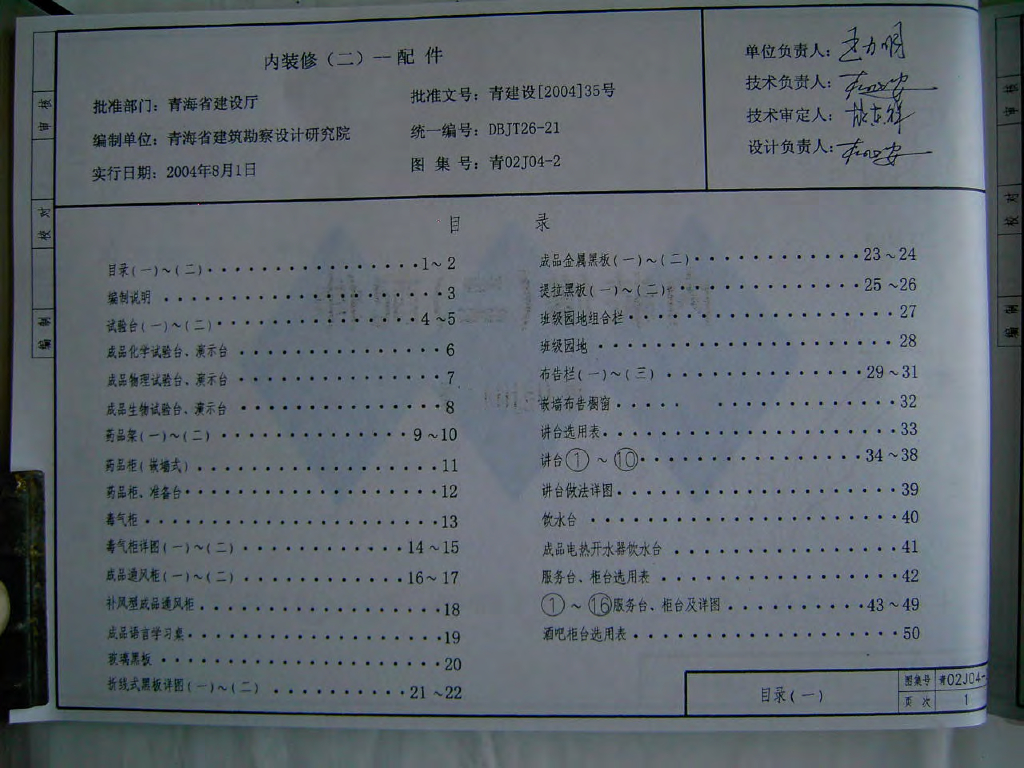 内装修（二）—配件
批准部门：青海省建设厅
批准文号：青建设[2004]35号
编制单位：青海省建筑勘察设计研究院
统一编号：DBJT26-21
实行日期：2004年8月1日
图 集 号：青02J04-2
单位负责人：
技术负责人：
技术审定人：
设计负责人：
审核
校对
编制
目 录
目录(一)～(二)··················1～2
编制说明··················3
试验台(一)～(二)··················4～5
成品化学试验台、演示台··················6
成品物理试验台、演示台··················7
成品生物试验台、演示台··················8
药品架(一)～(二)··················9～10
药品柜(嵌墙式)··················11
药品柜、准备台··················12
毒气柜··················13
毒气柜详图(一)～(二)··················14～15
成品通风柜(一)～(二)··················16～17
补风型成品通风柜··················18
成品语言学习桌··················19
玻璃黑板··················20
折线式黑板详图(一)～(二)··················21～22
成品金属黑板(一)～(二)··················23～24
提拉黑板(一)～(二)··················25～26
班级园地组合栏··················27
班级园地··················28
布告栏(一)～(三)··················29～31
嵌墙布告橱窗··················32
讲台选用表··················33
讲台①～⑩··················34～38
讲台做法详图··················39
饮水台··················40
成品电热开水器饮水台··················41
服务台、柜台选用表··················42
①～⑯服务台、柜台及详图··················43～49
酒吧柜台选用表··················50
目录(一)
图集号 青02J04-
页 次 1
审核
校对
编制